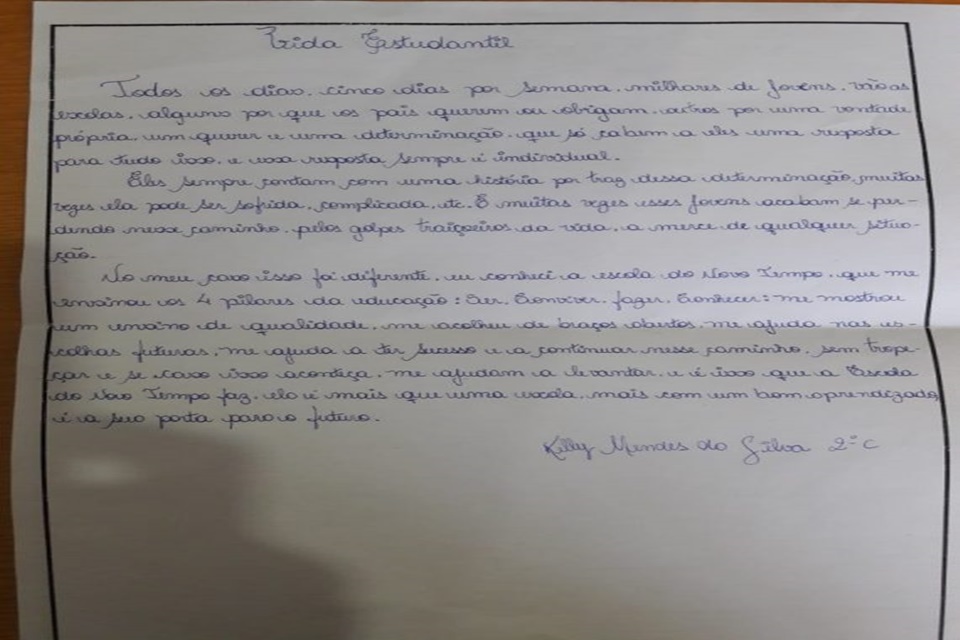 Vida Estudantil
Todos os dias, cinco dias por semana, milhares de jovens, vão as
escolas, alguns por que os pais querem ou obrigam, outros por uma vontade
própria, um querer e uma determinação, que só cabem a eles uma resposta
para tudo isso, e essa resposta sempre é individual.
Eles sempre contam com uma história por traz dessa determinação, muitas
vezes ela pode ser sofrida, complicada, etc. E muitas vezes esses jovens acabam se per-
dendo nesse caminho, pelos golpes traiçoeiros da vida, a merce de qualquer situa-
ção.
No meu caso isso foi diferente, eu conheci a escola do Novo Tempo, que me
ensinou os 4 pilares da educação: Ser, Conviver, fazer, Conhecer: me mostrou
um ensino de qualidade, me acolheu de braços abertos, me ajuda nas es-
colhas futuras, me ajuda a ter sucesso e a continuar nesse caminho, sem trope-
çar e se caso isso aconteça, me ajudam a levantar, e é isso que a Escola
do Novo Tempo faz, ela é mais que uma escola, mais com um bom aprendizado,
é a sua porta para o futuro.
Killy Mendes da Silva 2º C